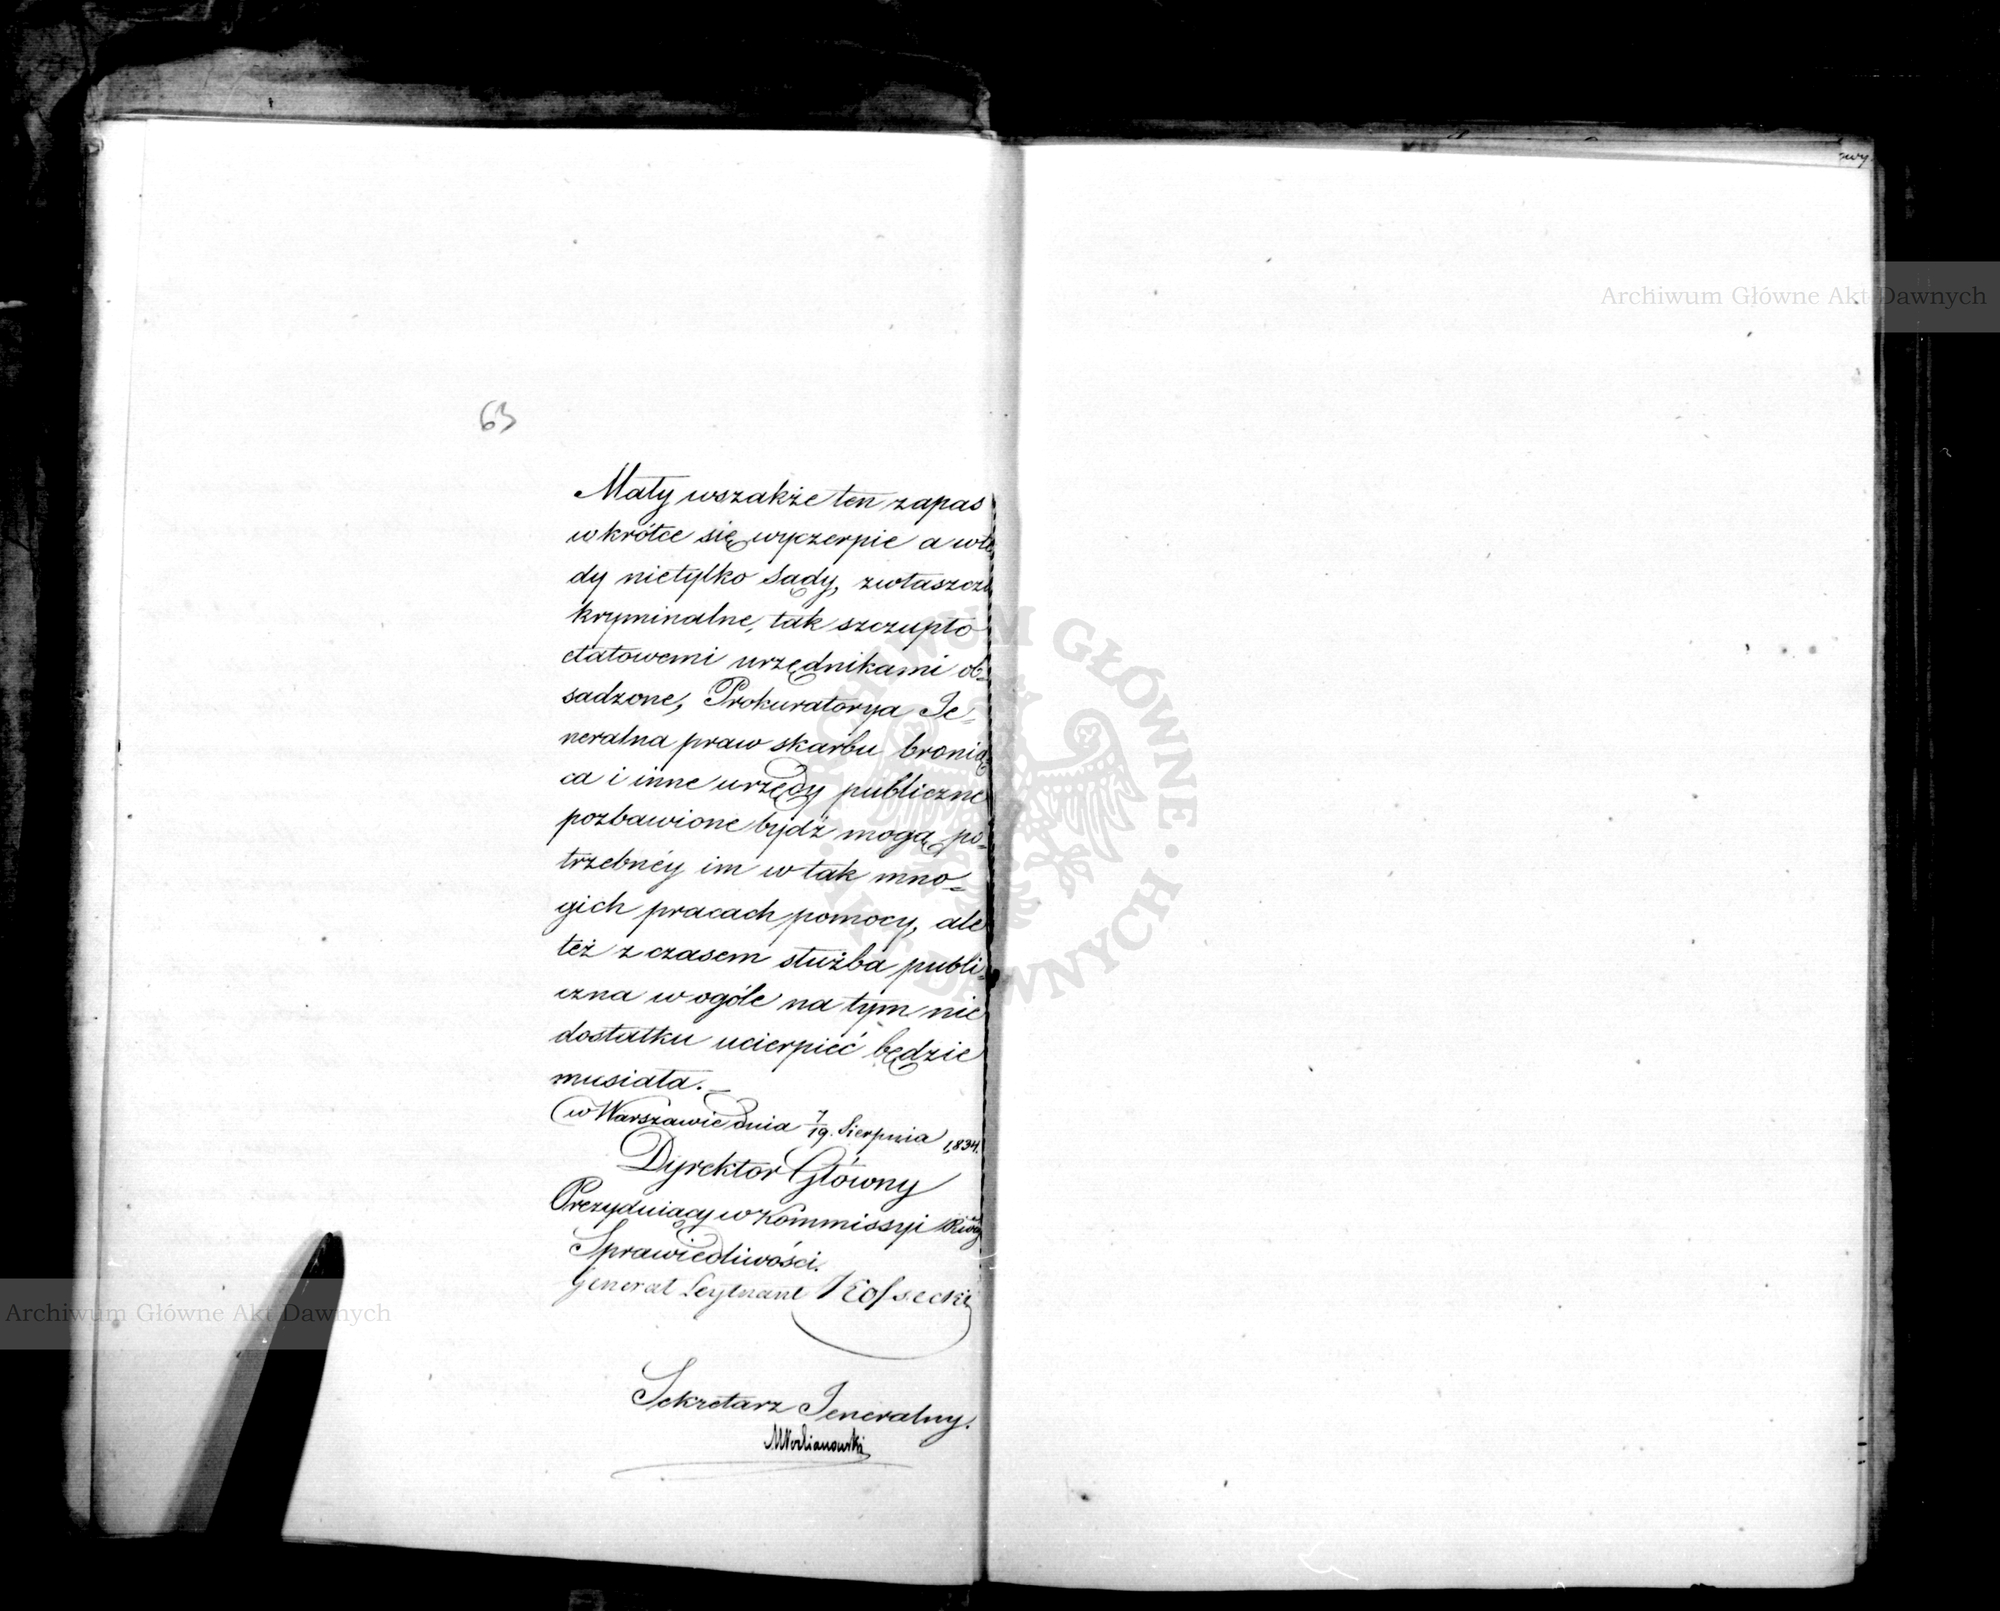 63
Mały wszakże ten zapas
wkrótce się wyczerpie a wte
dy nietylko Sądy, zwłaszcza
kryminalne, tak szczupło
etatowemi urzędnikami ob-
sadzone, Prokuratorya Je-
neralna praw skarbu bronią-
ca i inne urzędy publiczne
pozbawione bydź mogą po-
trzebnéy im w tak mno-
gich pracach pomocy, ale
też z czasem służba publi-
czna w ogóle na tym nie
dostatku ucierpieć będzie
musiała.
w Warszawie dnia 7/19. Sierpnia 1834.
Dyrektor Główny
Prezyduiący w Kommissyi
Sprawiedliwości.
Generał Leytnant Kossecki
Sekretarz Jeneralny.
Archiwum Główne Akt Dawnych
Archiwum Główne Akt Dawnych
ARCHIWUM GŁÓWNE AKT DAWNYCH